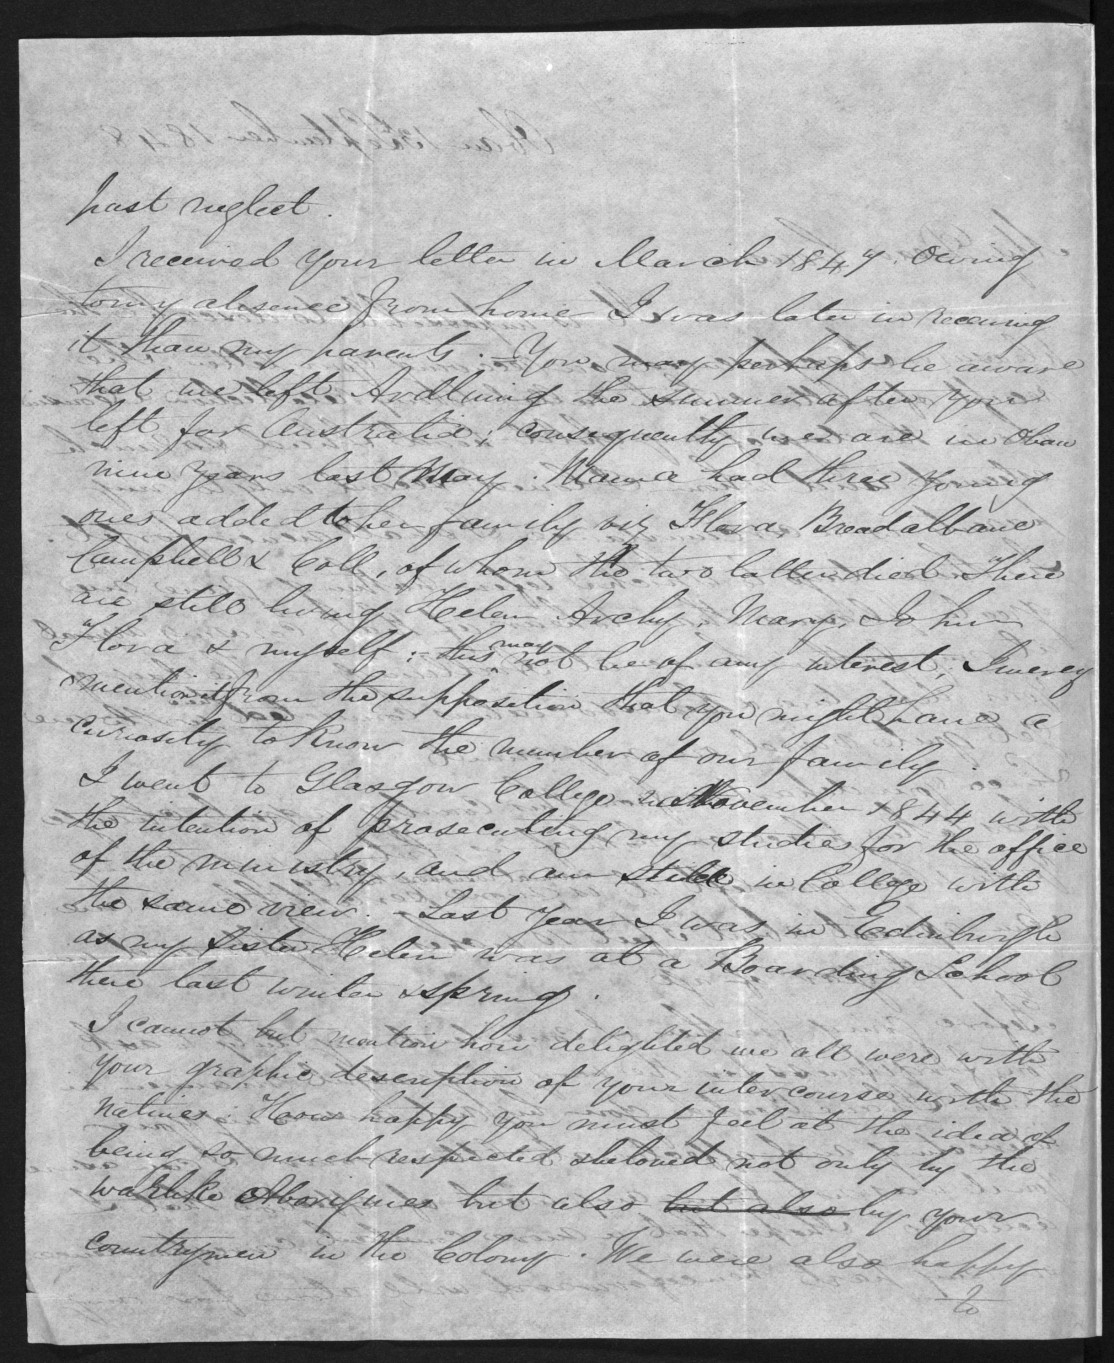 past neglect.
I received your letter in March 1847. Owing
to my absence from home I was later in receiving
it than my parents. - You may perhaps be aware
that we left Ardluing the summer after you
left for Australia; consequently we are in Oban
nine years last May. Mama had three young
ones added to her family viz Flora Breadalbane
Campbell & Coll, of whom the two latter died. There
are still living Helen Archy, Mary, John
Flora & myself; - this may not be of any interest; I merely
mention it from the supposition that you might have a
curiosity to know the number of our family.
I went to Glasgow College in November 1844 with
the intention of prosecuting my studies for the office
of the ministry, and am still in College with
the same view. - Last year I was in Edinburgh
as my sister Helen was at a Boarding School
there last winter & spring.
I cannot but mention how delighted we all were with
your graphic description of your intercourse with the
natives. How happy you must feel at the idea of
being so much respected & beloved not only by the
warlike Aborigines but also but also by your
countrymen in the Colony. We were also happy
to